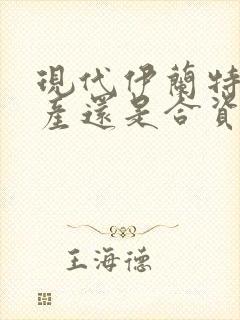 現代伊蘭特
產還是合資
王海德